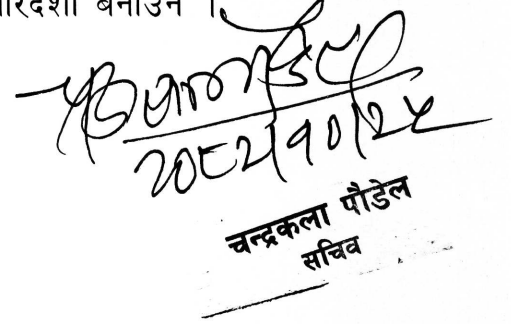 रदर्शी बनाउन ।
२०८२।१०।२५
चन्द्रकला पौडेल
सचिव